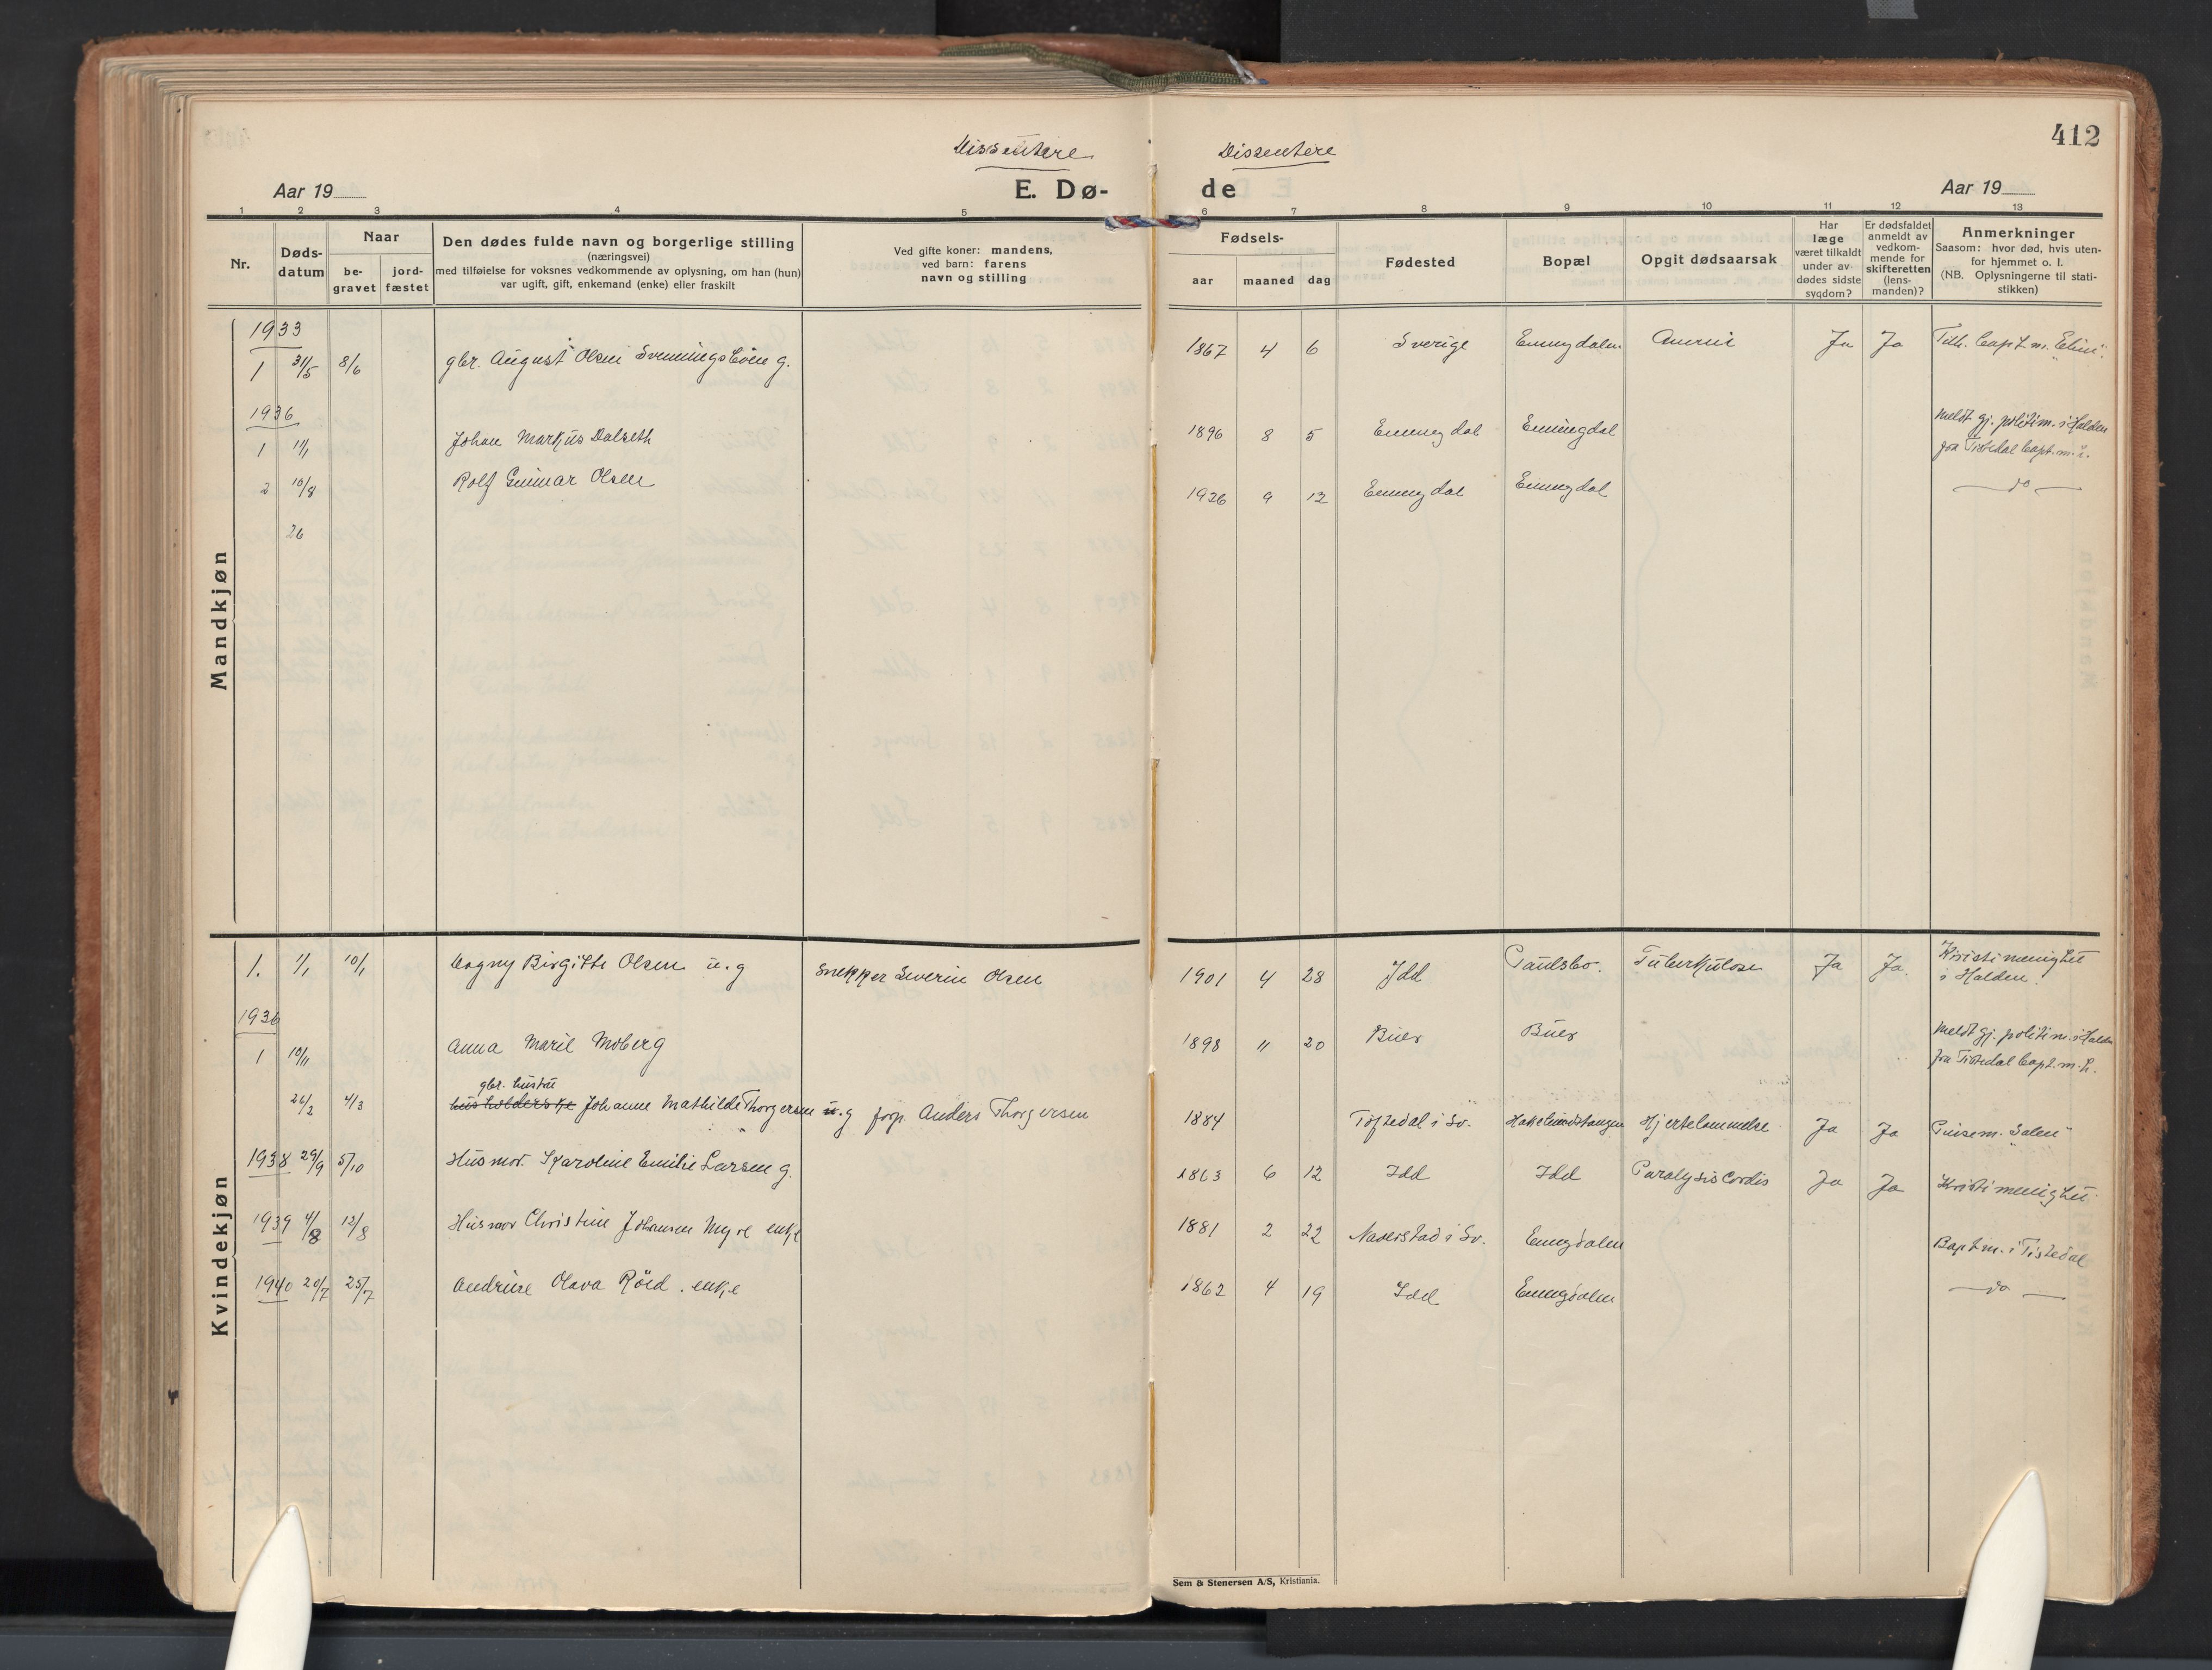 412
Dissentere
Dissentere
Aar 19
E. Dø-
de
Aar 19
1 2 3 4 5 6 7 8 9 10 11 12 13
Nr.
Døds-
datum
Naar
be-
gravet
jord-
fæstet
Den dødes fulde navn og borgerlige stilling
(næringsvei)
med tilføielse for voksnes vedkommende av oplysning, om han (hun)
var ugift, gift, enkemand (enke) eller fraskilt
Ved gifte koner: mandens,
ved barn: farens
navn og stilling
Fødsels-
aar
maaned
dag
Fødested
Bopæl
Opgit dødsaarsak
Har
læge
været tilkaldt
under av-
dødes sidste
sygdom?
Er dødsfaldet
anmeldt av
vedkom-
mende for
skifteretten
(lens-
manden)?
Anmerkninger
Saasom: hvor død, hvis uten-
for hjemmet o. l.
(NB. Oplysningerne til stati-
stikken)
Mandkjøn
1933
1 31/5 8/6 gbr. August Olsen g. 1867 4 6 Sverige Enningdalen Anemi Ja Ja Tilh. bapt. m. "Elim".
1936
1 11/1 Johan Markus Dalseth 1896 8 5 Enningdal Enningdal meldt gj. politim. i Halden
fra Tistedal bapt. m.
2 10/8 Rolf Gunnar Olsen 1926 9 12 Enningdal Enningdal — do —
26
Kvindekjøn
1. 1/1 10/1 Dagny Birgitte Olsen u.g Snekker Severin Olsen 1901 4 28 Idd Paulsbo. Tuberkulose Ja Ja. Kristi menighet
i Halden.
1936
1 10/11 Anna Maril Moberg 1898 11 20 Buer Buer meldt gj. politim. i Halden
fra Tistedal bapt. m.
gbr. hustru
26/2 4/3 husholderske Johanne Mathilde Thorgersen u.g forp. Anders Thorgersen 1884 Töftedal i Sv. Hjertelammelse Ja Ja Pinsem. "Salen"
1938 29/9 5/10 Husmor. Karoline Emilie Larsen g. 1863 6 12 Idd Idd Paralysis Cordis Ja Ja Kristi menighet.
1939 4/8 12/8 Husmor Christine Johansen Myre enke 1881 2 22 Naverstad i Sv. Enningdalen Baptm. i Tistedal
1940 20/7 25/7 Andrine Olava Röed. enke 1862 4 19 Idd Enningdalen — do —
Sem & Stenersen A/S, Kristiania.